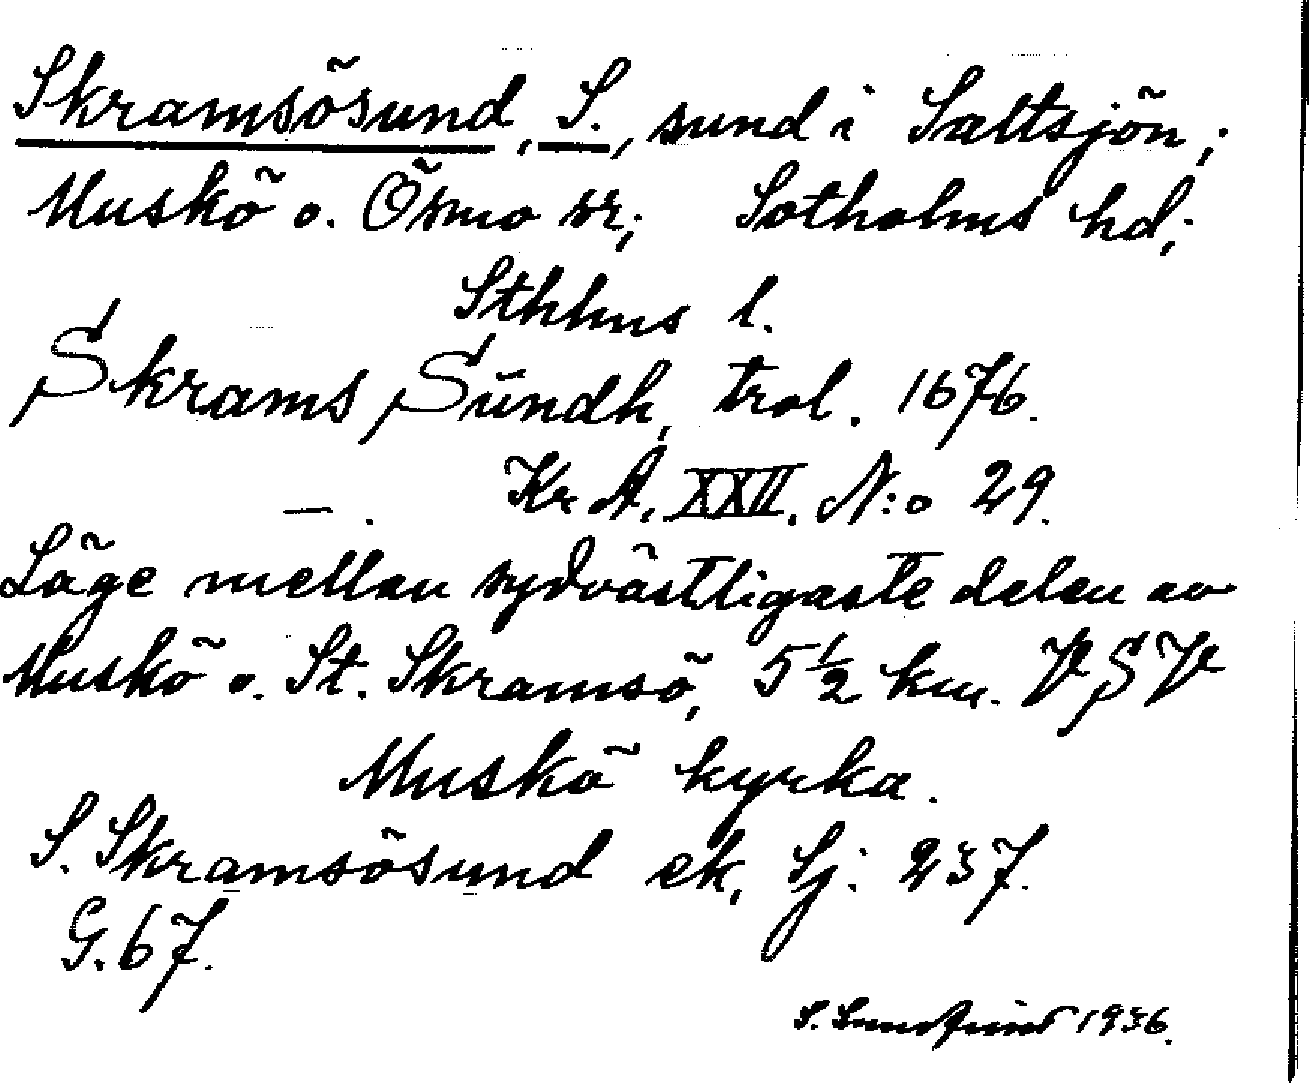 Skramsösund, S., sund i Saltsjön;
Muskö o. Ösmo sr; Sotholms hd;
Sthlms l.
Skrams Sundh, trol. 1676.
Kr A, XXII. N:o 29.
Läge mellan sydvästligaste delen av
Muskö o. St. Skramsö, 5 1/2 km. VSV
Muskö kyrka.
S. Skramsösund ek, Sj: 237.
G. 67.
S. 1936.